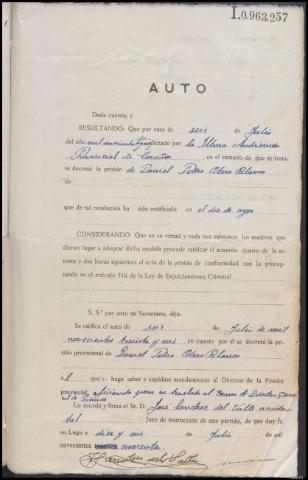 I.0.963,257
AUTO
Dada cuenta; y
RESULTANDO: Que por auto de seis de Julio
del año mil novecientos dictado por la Iltma Audiencia
Provincial de Coruña en el sumario de que se trata,
se decretó la prisión de Daniel Pedro Otero Blanco
de
que de tal resolución ha sido notificado en el día de ayer
CONSIDERANDO: Que en su virtud y toda vez subsisten los motivos que
dieron lugar a adoptar dicha medida procede ratificar el acuerdo dentro de la se-
tenta y dos horas siguientes al acto de la prisión de conformidad con lo precep-
tuado en el artículo 516 de la Ley de Enjuiciamiento Criminal
S. S.ª por ante mí Secretaria, dijo:
Se ratifica el auto de seis de Julio de mil
novecientos treinta y seis en cuanto por él se decretó la pri-
sión provisional de Daniel Pedro Otero Blanco
l que se haga saber y expídase mandamiento al Director de la Prisión
provincial, oficiando para su traslado al Director
Lo acordó y firma el Sr. D. Jose Sanchez del Valle accidental
Juez de instrucción de este partido, de que doy fe
en Lugo a diez y seis de Julio de mil
novecientos cuarenta.